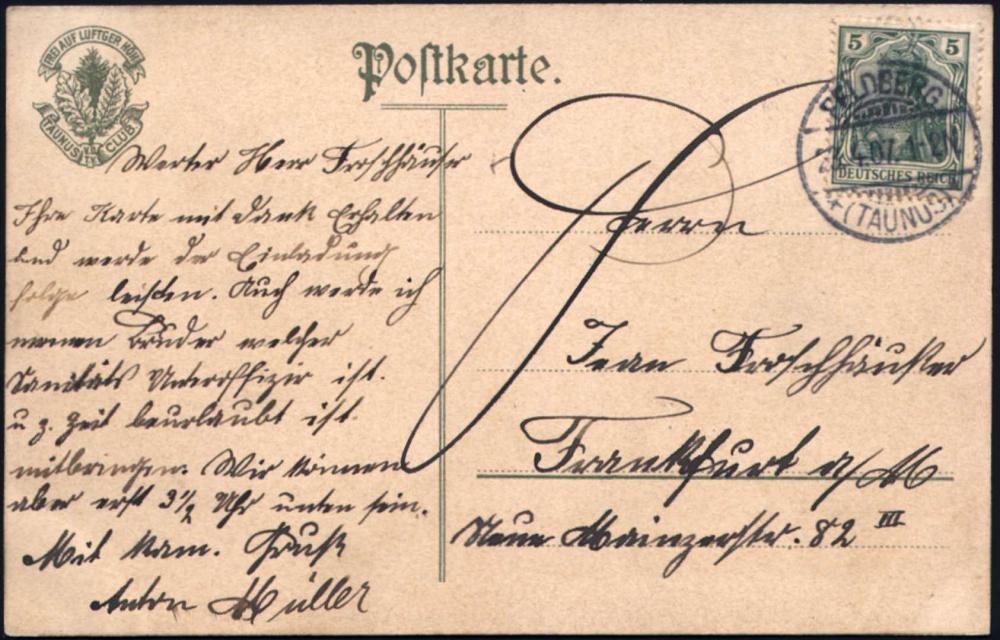 FREI AUF LUFTGER HÖH
TAUNUS CLUB
Postkarte.
5 5
DEUTSCHES REICH
FELDBERG
4.07. 1-2N
(TAUNUS)
Werter Herr Froschhäuser
Ihre Karte mit Dank Erhalten
und werde der Einladung
folge leisten. Auch werde ich
meinen Bruder welcher
Sanitäts Unteroffizir ist.
u z. Zeit beurlaubt ist
mitbringen. Wir können
aber erst 3½ Uhr unten sein.
Mit kam. Gruß
Anton Müller
Herrn
Jean Froschhäußer
Frankfurt a/M
Neue Mainzerstr. 82 III